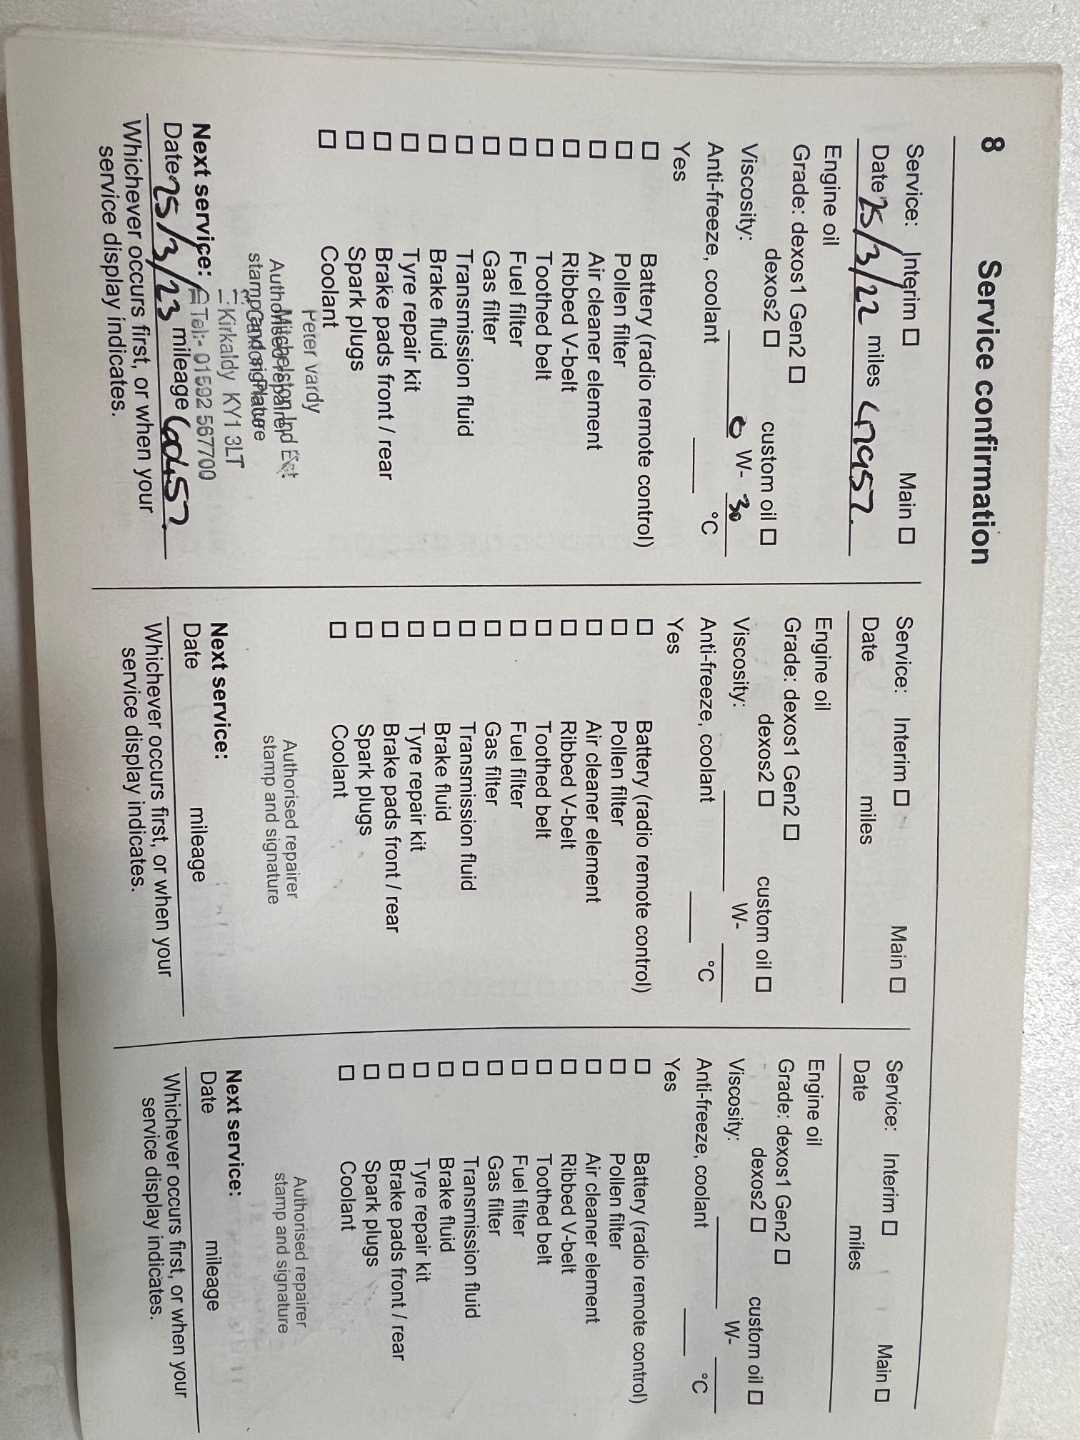 8 Service confirmation
Service: Interim ☐ Main ☐
Date 25/3/22 miles 47957.
Engine oil
Grade: dexos1 Gen2 ☐
dexos2 ☐ custom oil ☐
Viscosity: 0 W- 30
Anti-freeze, coolant °C
Yes
☐ Battery (radio remote control)
☐ Pollen filter
☐ Air cleaner element
☐ Ribbed V-belt
☐ Toothed belt
☐ Fuel filter
☐ Gas filter
☐ Transmission fluid
☐ Brake fluid
☐ Tyre repair kit
☐ Brake pads front / rear
☐ Spark plugs
☐ Coolant
Peter vardy
Mitchelston Ind Est
Authorised repairer
stamp and signature
Kirkaldy KY1 3LT
Tel:- 01592 567700
Next service:
Date 25/3/23 mileage 60457.
Whichever occurs first, or when your
service display indicates.
Service: Interim ☐ Main ☐
Date miles
Engine oil
Grade: dexos1 Gen2 ☐
dexos2 ☐ custom oil ☐
Viscosity: W-
Anti-freeze, coolant °C
Yes
☐ Battery (radio remote control)
☐ Pollen filter
☐ Air cleaner element
☐ Ribbed V-belt
☐ Toothed belt
☐ Fuel filter
☐ Gas filter
☐ Transmission fluid
☐ Brake fluid
☐ Tyre repair kit
☐ Brake pads front / rear
☐ Spark plugs
☐ Coolant
Authorised repairer
stamp and signature
Next service:
Date mileage
Whichever occurs first, or when your
service display indicates.
Service: Interim ☐ Main ☐
Date miles
Engine oil
Grade: dexos1 Gen2 ☐
dexos2 ☐ custom oil ☐
Viscosity: W-
Anti-freeze, coolant °C
Yes
☐ Battery (radio remote control)
☐ Pollen filter
☐ Air cleaner element
☐ Ribbed V-belt
☐ Toothed belt
☐ Fuel filter
☐ Gas filter
☐ Transmission fluid
☐ Brake fluid
☐ Tyre repair kit
☐ Brake pads front / rear
☐ Spark plugs
☐ Coolant
Authorised repairer
stamp and signature
Next service:
Date mileage
Whichever occurs first, or when your
service display indicates.